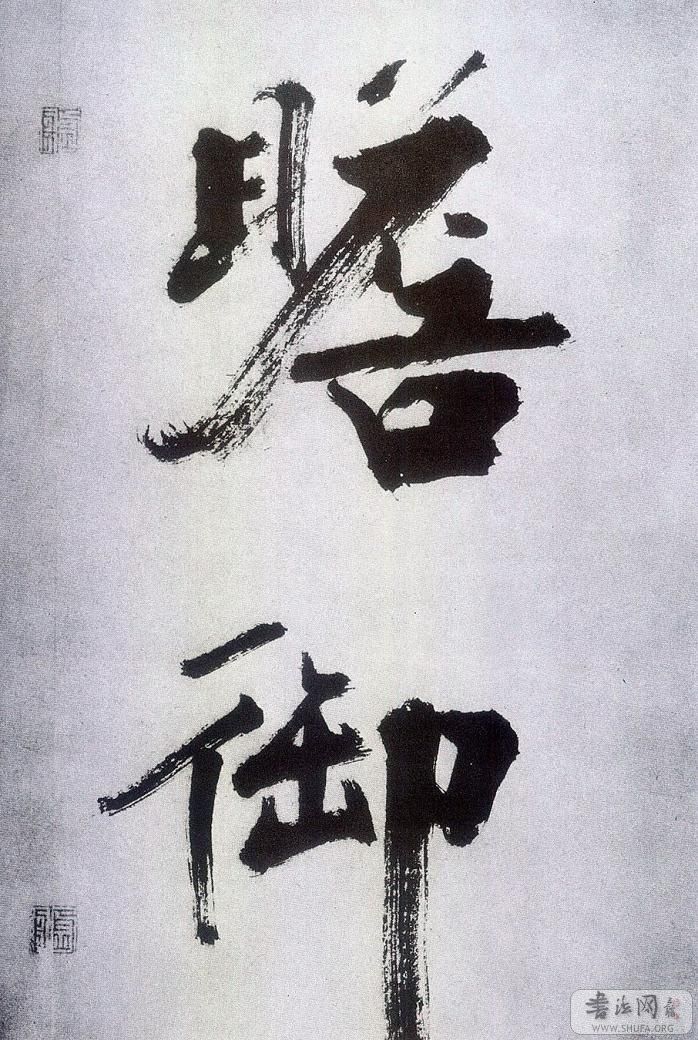 瞻
御
书法网
WWW.SHUFA.ORG